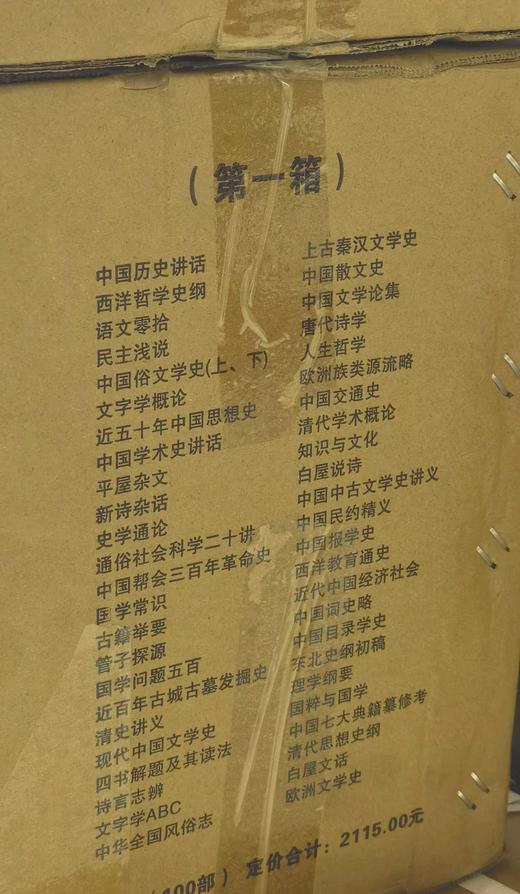 （第一箱）
中国历史讲话
西洋哲学史纲
语文零拾
民主浅说
中国俗文学史(上、下)
文字学概论
近五十年中国思想史
中国学术史讲话
平屋杂文
新诗杂话
史学通论
通俗社会科学二十讲
中国帮会三百年革命史
国学常识
古籍举要
管子探源
国学问题五百
近百年古城古墓发掘史
清史讲义
现代中国文学史
四书解题及其读法
诗言志辨
文字学ABC
中华全国风俗志
上古秦汉文学史
中国散文史
中国文学论集
唐代诗学
人生哲学
欧洲族类源流略
中国交通史
清代学术概论
知识与文化
白屋说诗
中国中古文学史讲义
中国民约精义
中国报学史
西洋教育通史
近代中国经济社会
中国词史略
中国目录学史
东北史纲初稿
理学纲要
国粹与国学
中国七大典籍纂修考
清代思想史纲
白屋文话
欧洲文学史
（100部）定价合计：2115.00元